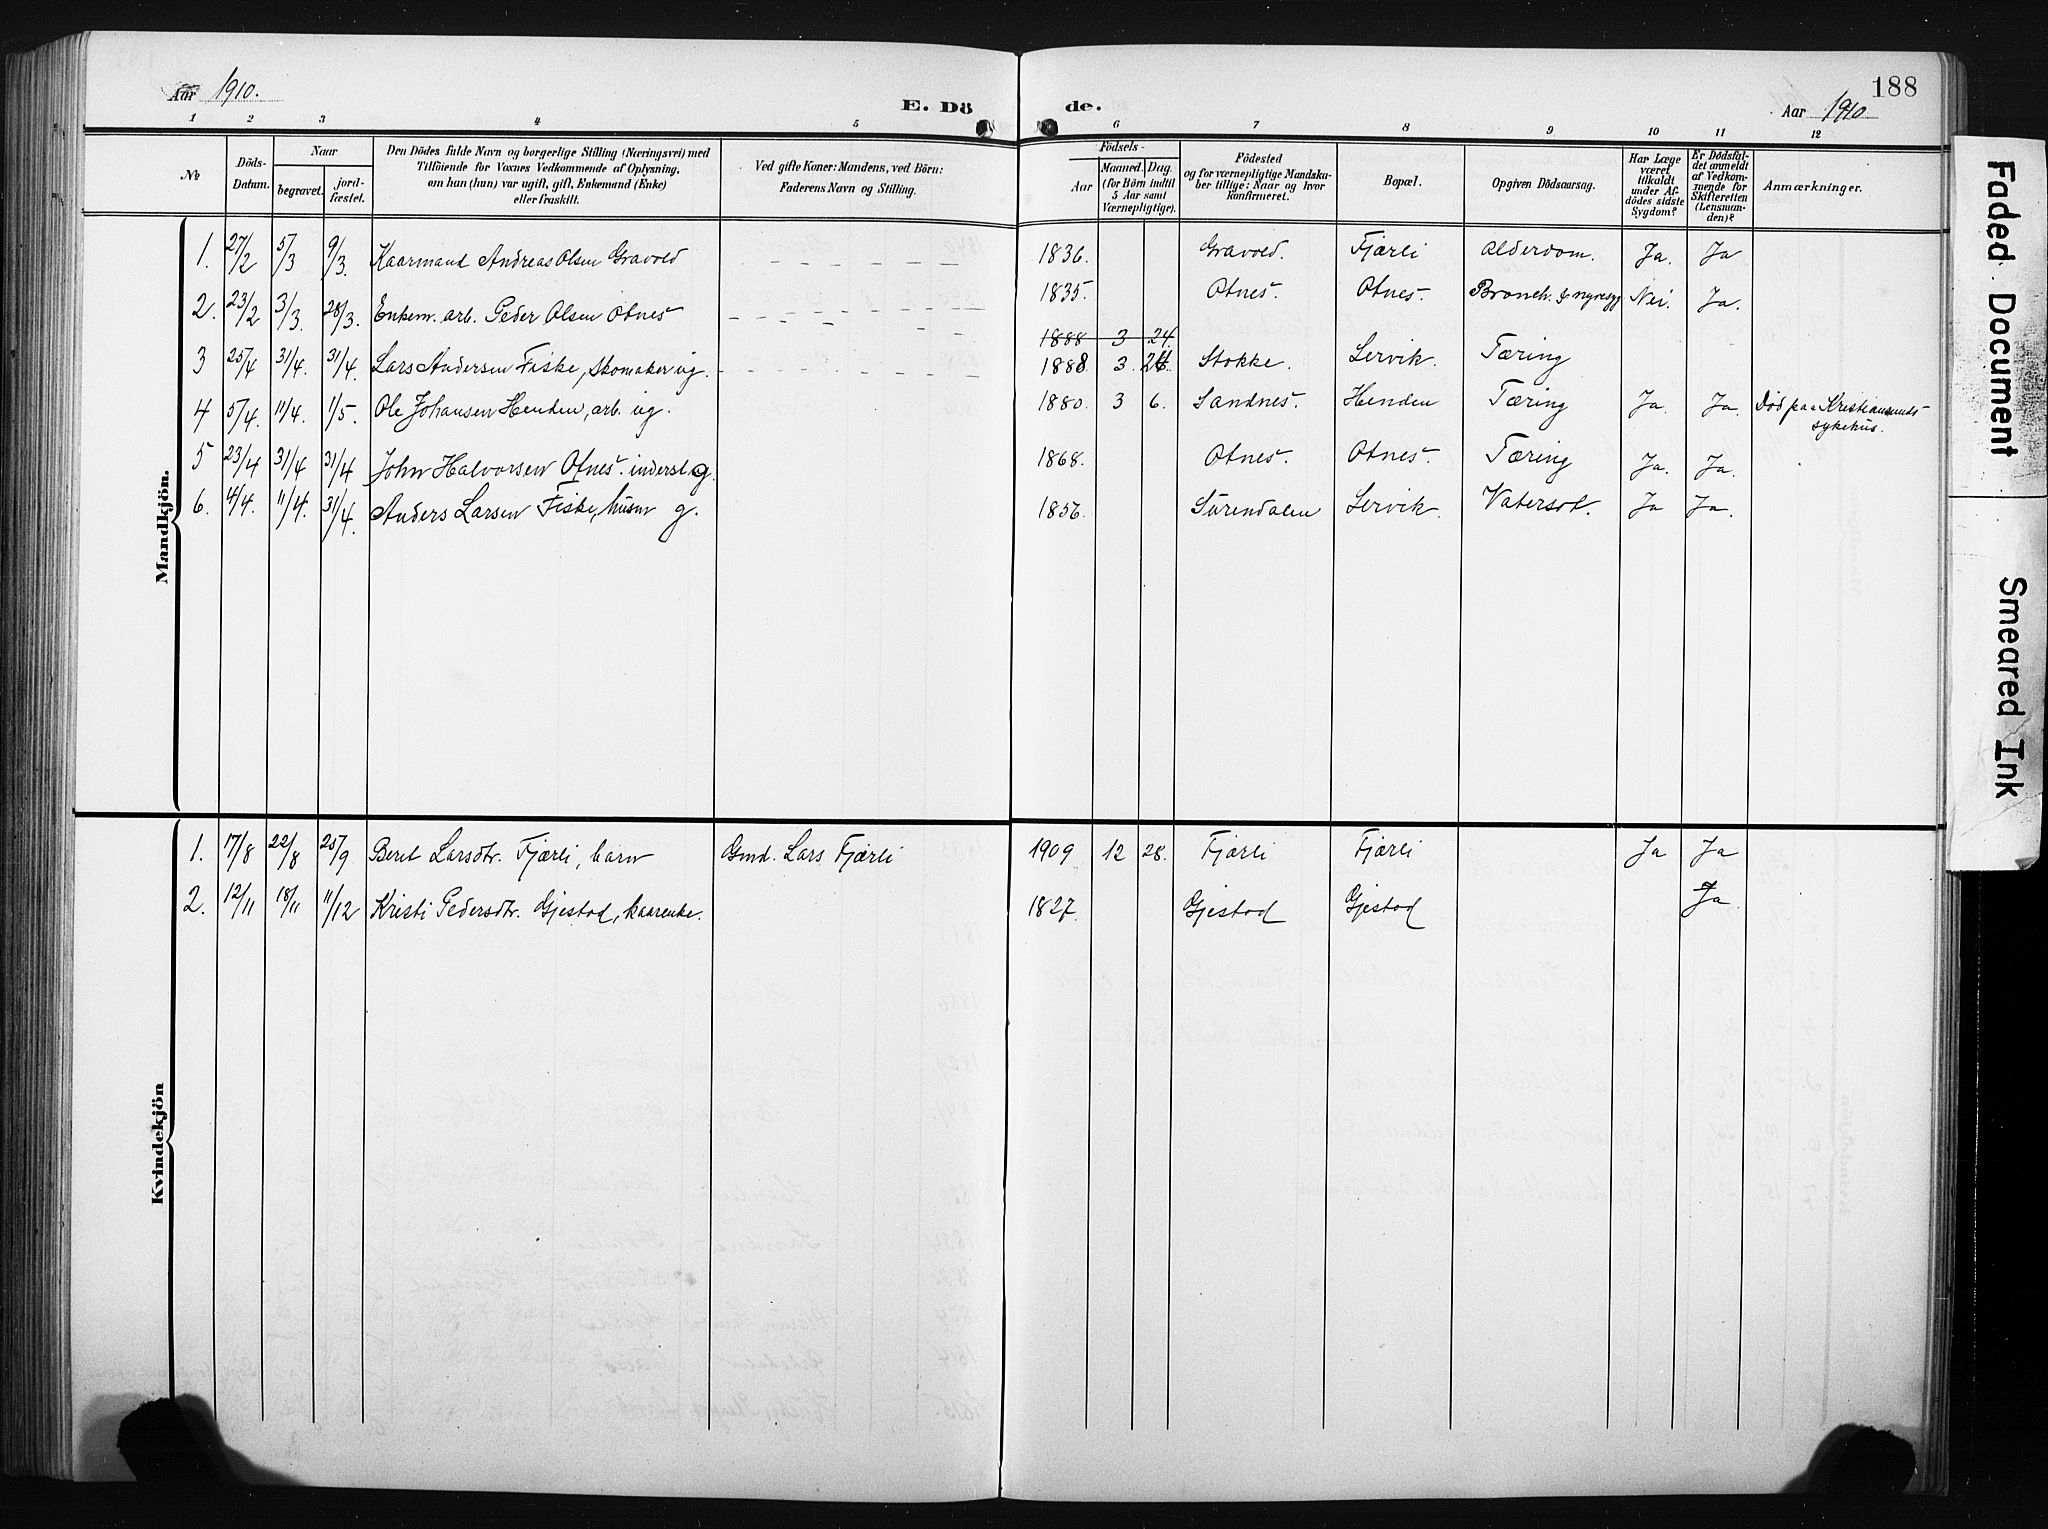 188
Aar 1910.
E. Dö de.
Aar 1910
1 2 3 4 5 6 7 8 9 10 11 12
No
Döds-Datum.
Naar
begravet.
jord-fæstet.
Den Dödes fulde Navn og borgerlige Stilling (Næringsvei) med
Tilföiende for Voxnes Vedkommende af Oplysning,
om han (hun) var ugift, gift, Enkemand (Enke)
eller fraskilt.
Ved gifte Koner: Mandens, ved Börn:
Faderens Navn og Stilling.
Födsels-
Aar
Maaned. Dag.
(for Börn indtil
5 Aar samt
Værnepligtige).
Födested
og for værnepligtige Mandska-
ber tillige: Naar og hvor
konfirmeret.
Bopæl.
Opgiven Dödsaarsag.
Har Læge
været
tilkaldt
under Af-
dödes sidste
Sygdom?
Er Dödsfal-
det anmeldt
af Vedkom-
mende for
Skifteretten
(Lensman-
den)?
Anmærkninger.
Mandkjön.
1. 27/2 5/3 9/3. Kaarmand Andreas Olsen Gravold 1836. Gravold. Fjærli Alderdom. Ja. Ja
2. 23/2 3/3. 28/3. Enkem. arb. Peder Olsen Otnes 1835. Otnes. Otnes. Bronch. & nyresyg Nei. Ja.
1888 3 24.
3 25/4 31/4. 31/4. Lars Andersen Fiske, skomaker ug. 1888 3. 24. Stokke. Lervik. Tæring
4 5/4. 11/4. 1/5. Ole Johansen Henden, arb. ug. 1880. 3 6. Sandnes. Henden Tæring Ja. Ja. Död paa Kristiansunds
sykehus.
5 23/4 31/4 31/4 John Halvorsen Otnes. inderst g. 1868. Otnes. Otnes. Tæring Ja. Ja.
6. 4/4. 11/4. 31/4. Anders Larsen Fiske, husm g. 1856. Surendalen Lervik. Vatersot. Ja Ja.
Kvindekjön
1. 17/8 22/8 25/9 Beret Larsdtr. Fjærli, barn Gmd. Lars Fjærli 1909 12 28. Fjærli Fjærli Ja Ja
2. 12/11 18/11 11/12 Kristi Pedersdtr. Gjestad, kaarenke. 1827. Gjestad Gjestad Ja.
Faded Document
Smeared Ink